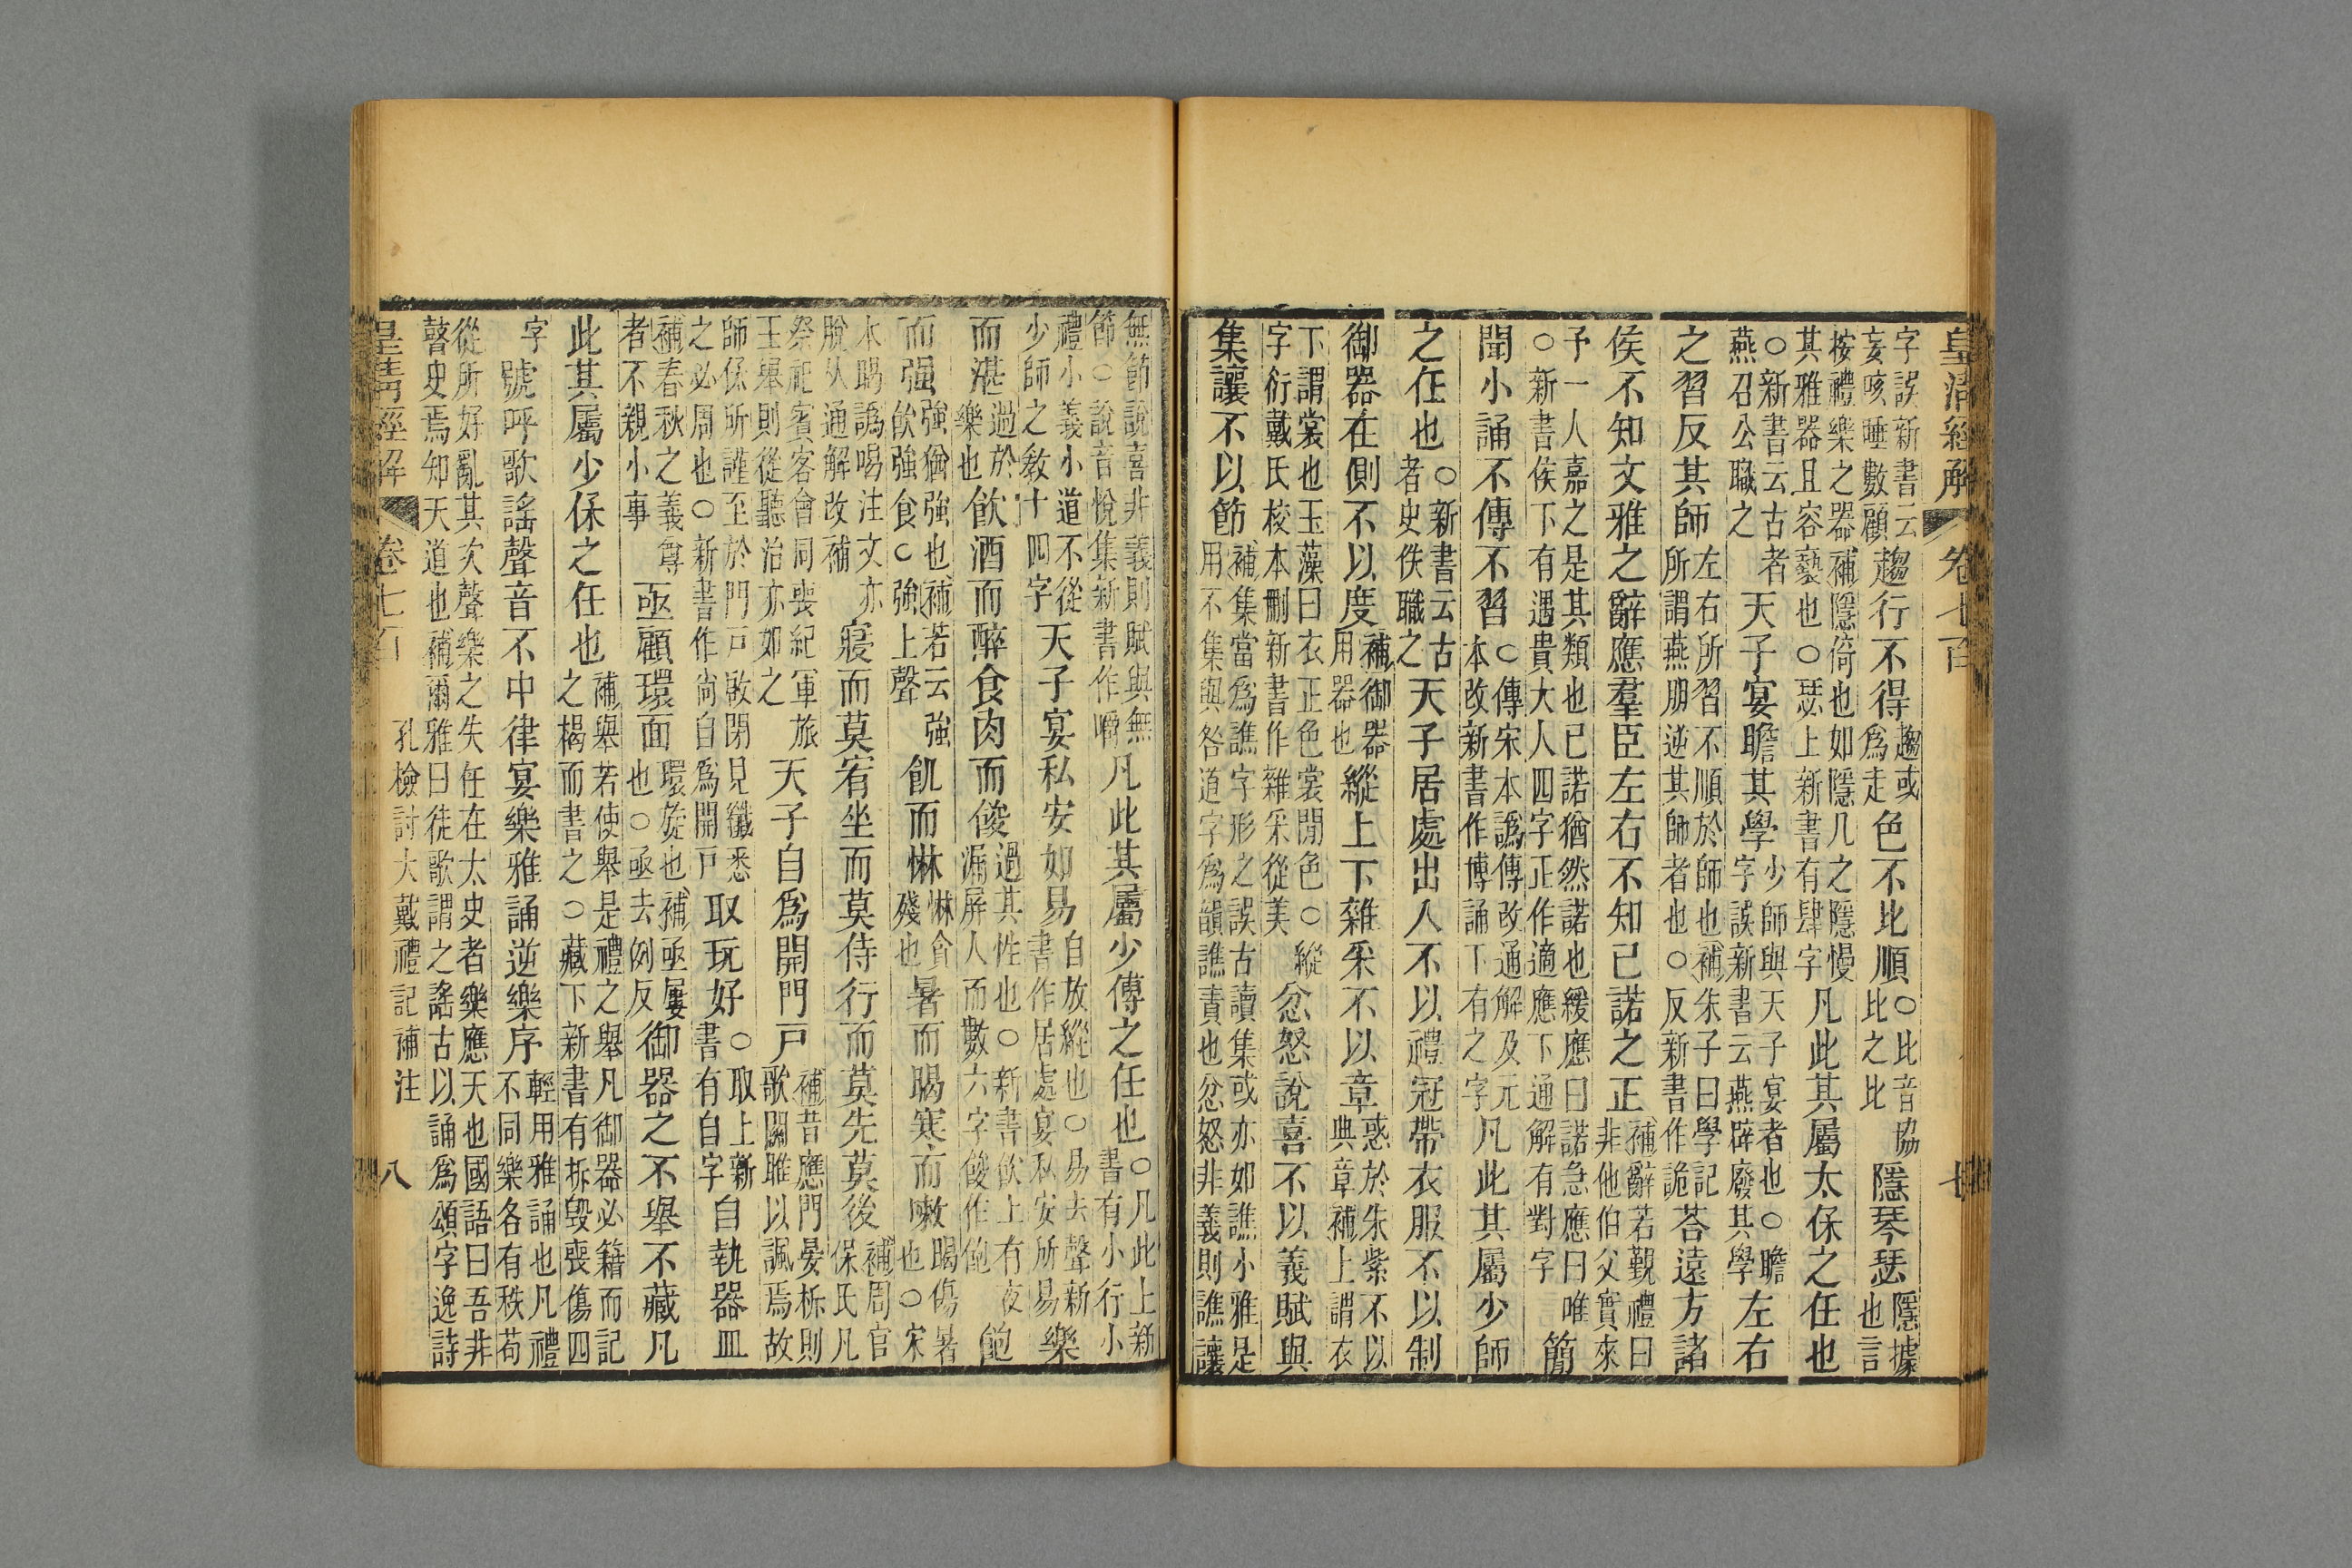 皇清經解 卷七百 七
字誤新書云妄咳唾數顧趨行不得趨或爲走色不比順○比音協比之比隱琴瑟隱據也言
桉禮樂之器補隱倚也如隱几之隱慢其雅器且容褻也○瑟上新書有肆字凡此其屬太保之任也
○新書云古者燕召公職之天子宴瞻其學少師與天子宴者也○瞻字誤新書云燕辟廢其學左右
之習反其師左右所習不順於師也補朱子曰學記所謂燕朋逆其師者也○反新書作詭荅遠方諸
侯不知文雅之辭應羣臣左右不知已諾之正補辭若覲禮曰非他伯父實來
予一人嘉之是其類也已諾猶然諾也緩應曰諾急應曰唯○新書侯下有遇貴大人四字正作適應下通解有對字簡
聞小誦不傳不習○傳宋本譌傳改通解及元本改新書作博誦下有之字凡此其屬少師
之任也○新書云古者史佚職之天子居處出入不以禮冠帶衣服不以制
御器在側不以度補御器用器也縱上下雜采不以章惑於朱紫不以典章補上謂衣
下謂裳也玉藻曰衣正色裳閒色○縱字衍戴氏校本刪新書作雜采從美忿怒說喜不以義賦與
集讓不以節補集當爲譙字形之誤古讀集或亦如譙小雅是用不集與咎道字爲韻譙責也忿怒非義則譙讓
無節說喜非義則賦與無節○說音悅集新書作嚼凡此其屬少傅之任也○凡此上新書有小行小
禮小義小道不從少師之敎十四字天子宴私安如易自放縱也○易去聲新書作居處宴私安所易樂
而湛過於樂也飮酒而醉食肉而餕過其性也○新書飮上有夜漏屏人而數六字餕作飽飽
而强強猶強也補若云強飮強食○強上聲飢而惏惏貪殘也暑而暍寒而嗽暍傷暑也○宋
本暍譌喝注文亦脫从通解改補寢而莫宥坐而莫侍行而莫先莫後補周官保氏凡
祭祀賓客會同喪紀軍旅王舉則從聽治亦如之天子自爲開門戸補昔應門晏柝則歌關雎以諷焉故
師保所謹至於門戸啟閉見纖悉之必周也○新書作尙自爲開戸取玩好○取上新書有自字自執器皿
補春秋之義尊者不親小事亟顧環面環旋也補亟屢也○亟去例反御器之不舉不藏凡
此其屬少保之任也補舉若使舉是禮之舉凡御器必籍而記之楬而書之○藏下新書有折毀喪傷四
字號呼歌謠聲音不中律宴樂雅誦逆樂序輕用雅誦也凡禮不同樂各有秩苟
從所好亂其次聲樂之失任在太史者樂應天也國語曰吾非瞽史焉知天道也補爾雅曰徒歌謂之謠古以誦爲頌字逸詩
皇清經解 卷七百 孔檢討大戴禮記補注 八